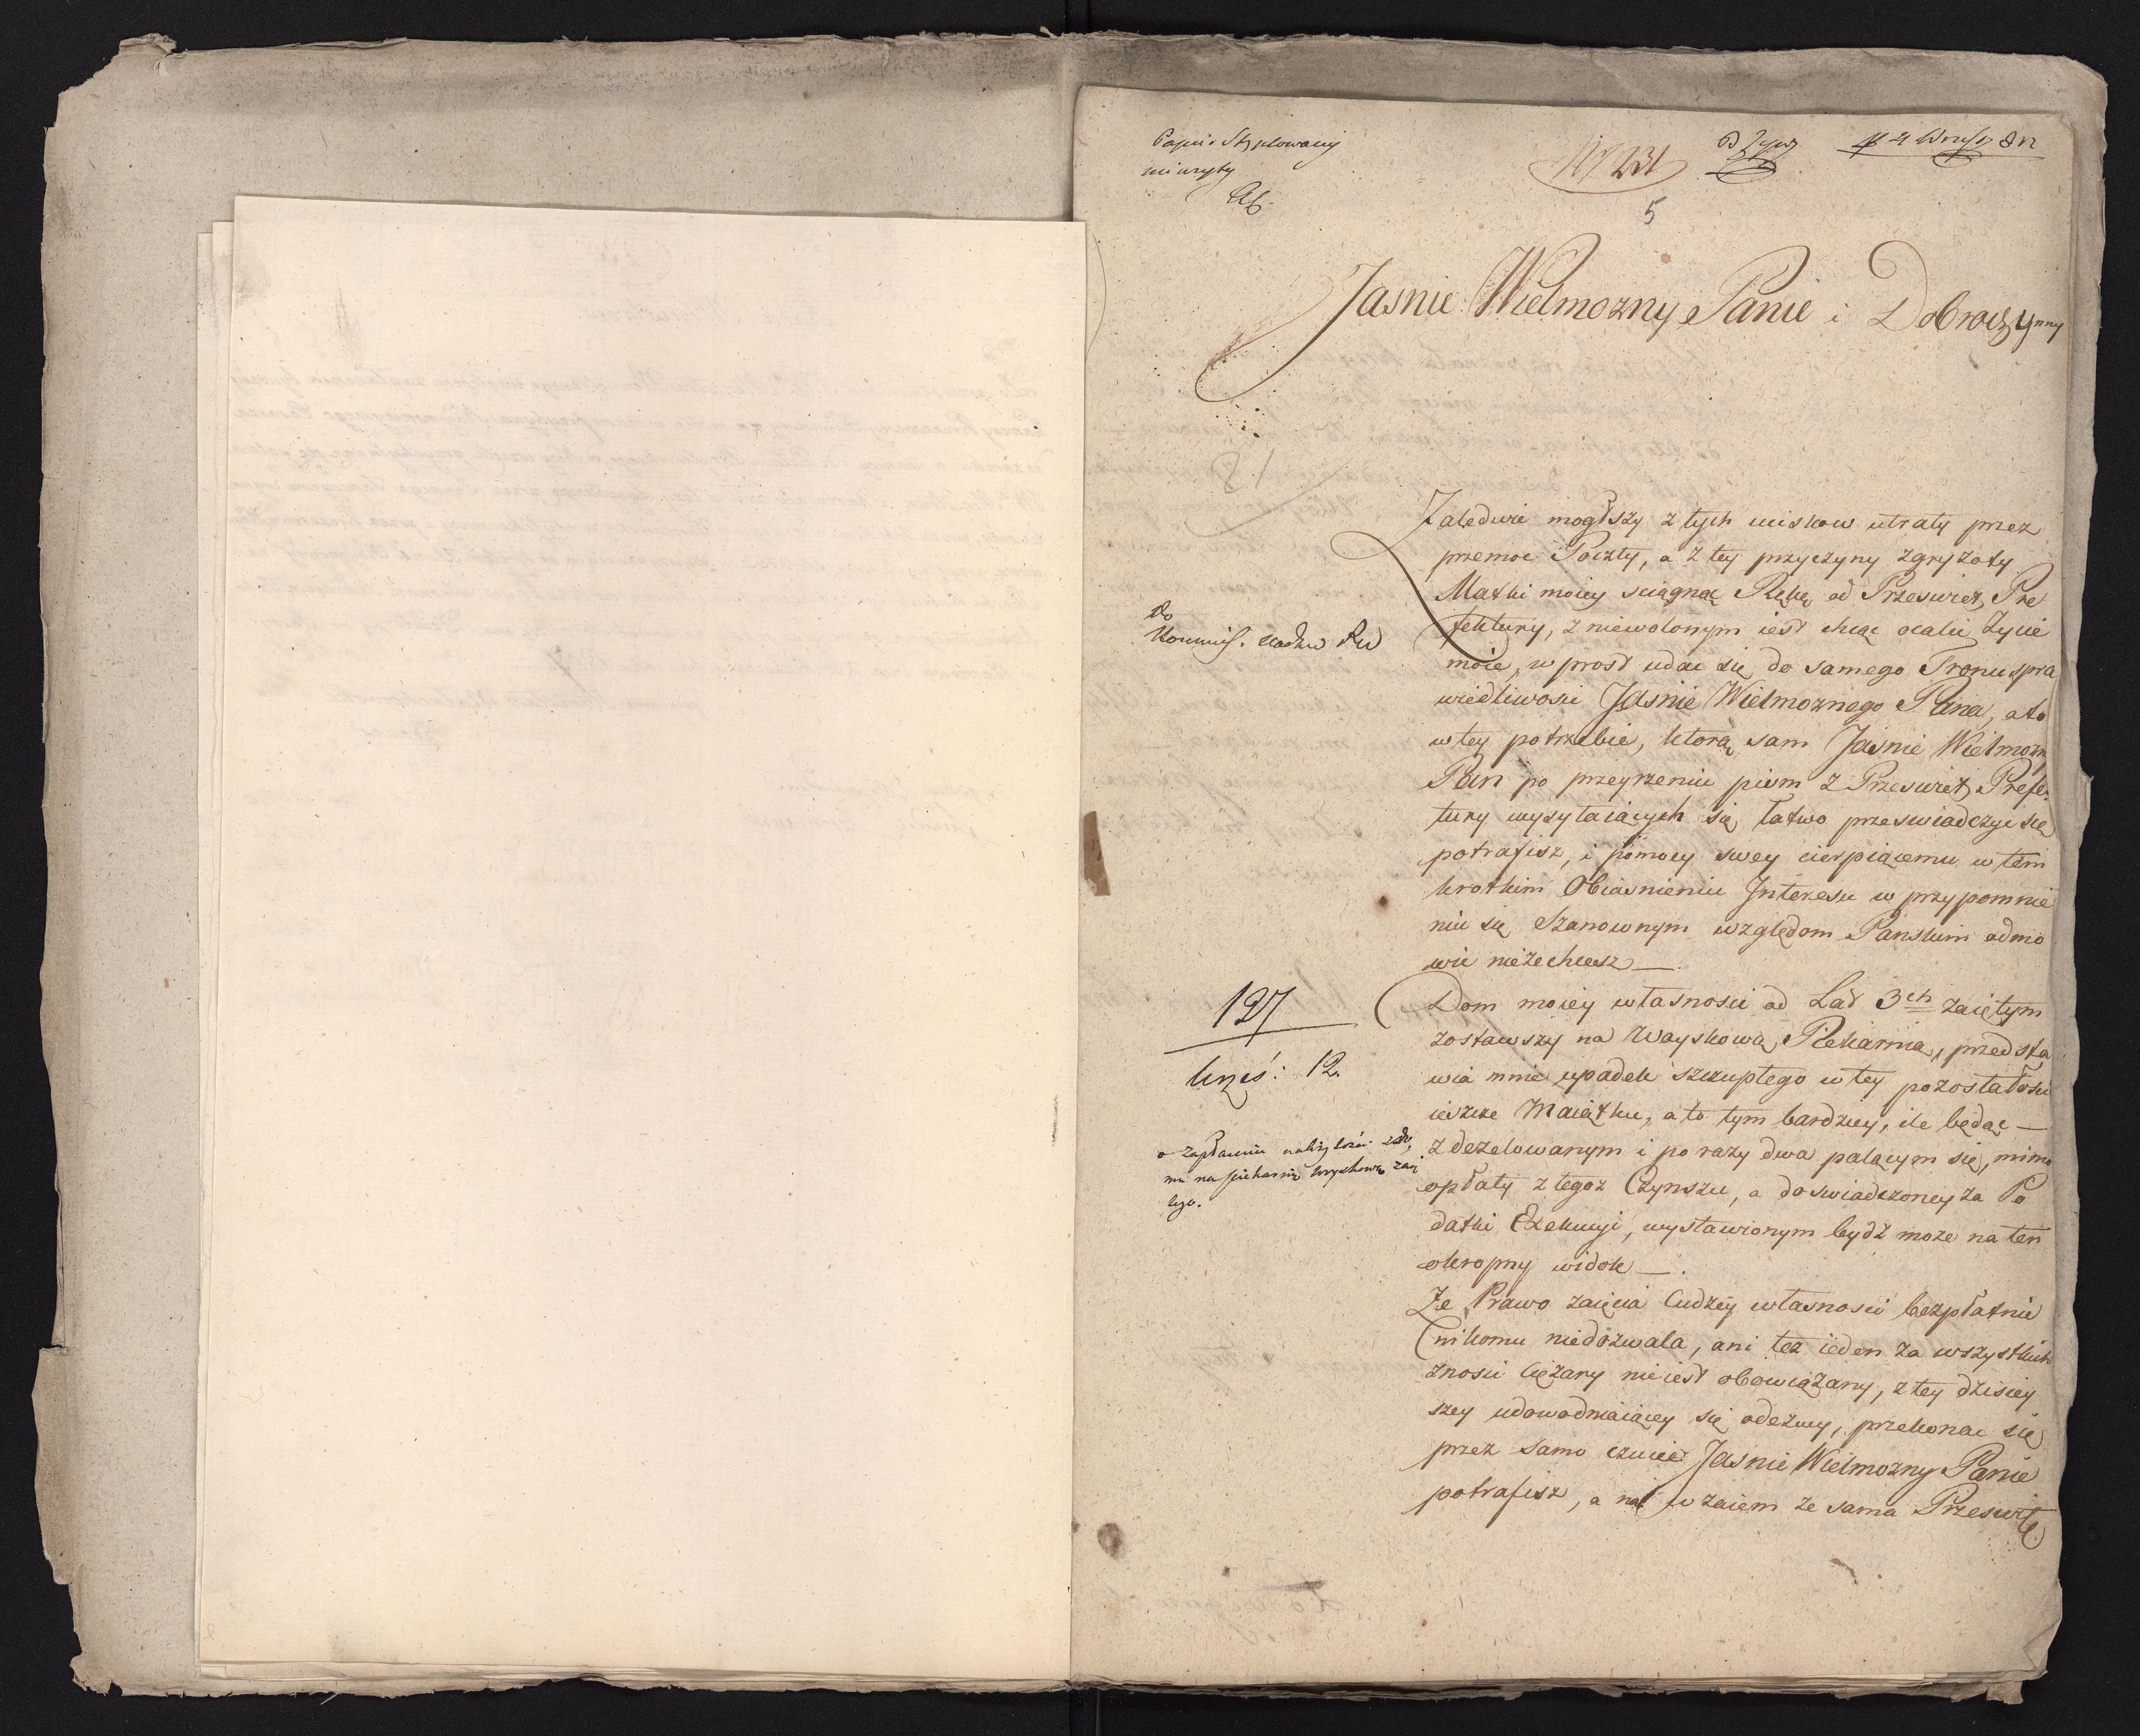 Papier Stęplowany
nieuzyty
N 231
5
Jasnie Wielmozny Panie i Dobroczynny
Zaledwie mogłszy z tych uciskow utraty przez
przemoc Poczty, a z tey przyczyny zgryzoty
Matki moiey sciągnąc Rękę od Przeswiet. Pre
fektury, zniewolonym iest chcąc ocalic życie
moie, w prost udac się do samego Tronu spra
wiedliwosci Jasnie Wielmoznego Pana, a to
w tey potrzebie, ktorą sam Jasnie Wielmozny
Pan po przeyrzeniu pism z Przeswiet. Prefe-
ktury wysyłaiących się łatwo przeswiadczyc się
potrafisz, i pomocy swey cierpiącemu w tem
krotkim Obiasnieniu Interesu w przypomnie
niu się Szanownym względom Panskim odmo
wic niezechcesz —.
Do
Kommis.
Dom moiey własnosci od Lat 3ch zaiętym
zostawszy na Woyskową Piekarnią, przedsta
wia mnie upadek szczupłego w tey pozostałosci
ieszcze Maiątku, a to tym bardziey, ile będąc —
zdezelowanym i po razy dwa palącym się, mimo
opłaty z tegoz Czynszu, a doswiadczoney za Po
datki Exekucyi, wystawionym bydź moze na ten
okropny widok —.
127
Wrześ: 12.
o zapłacenie należytości do
mu na piekarnią woyskową zaię
tego.
Ze Prawo zaięcia Cudzey własnosci bezpłatnie
nikomu niedozwala, ani tez ieden za wszystkich
znosic ciężary nieiest obowiązany, z tey dzisiey
szey udowodniaiącey się odezwy, przekonac się
przez samo czucie Jasnie Wielmozny Panie
potrafisz, a na wzaiem ze sama Przeswię